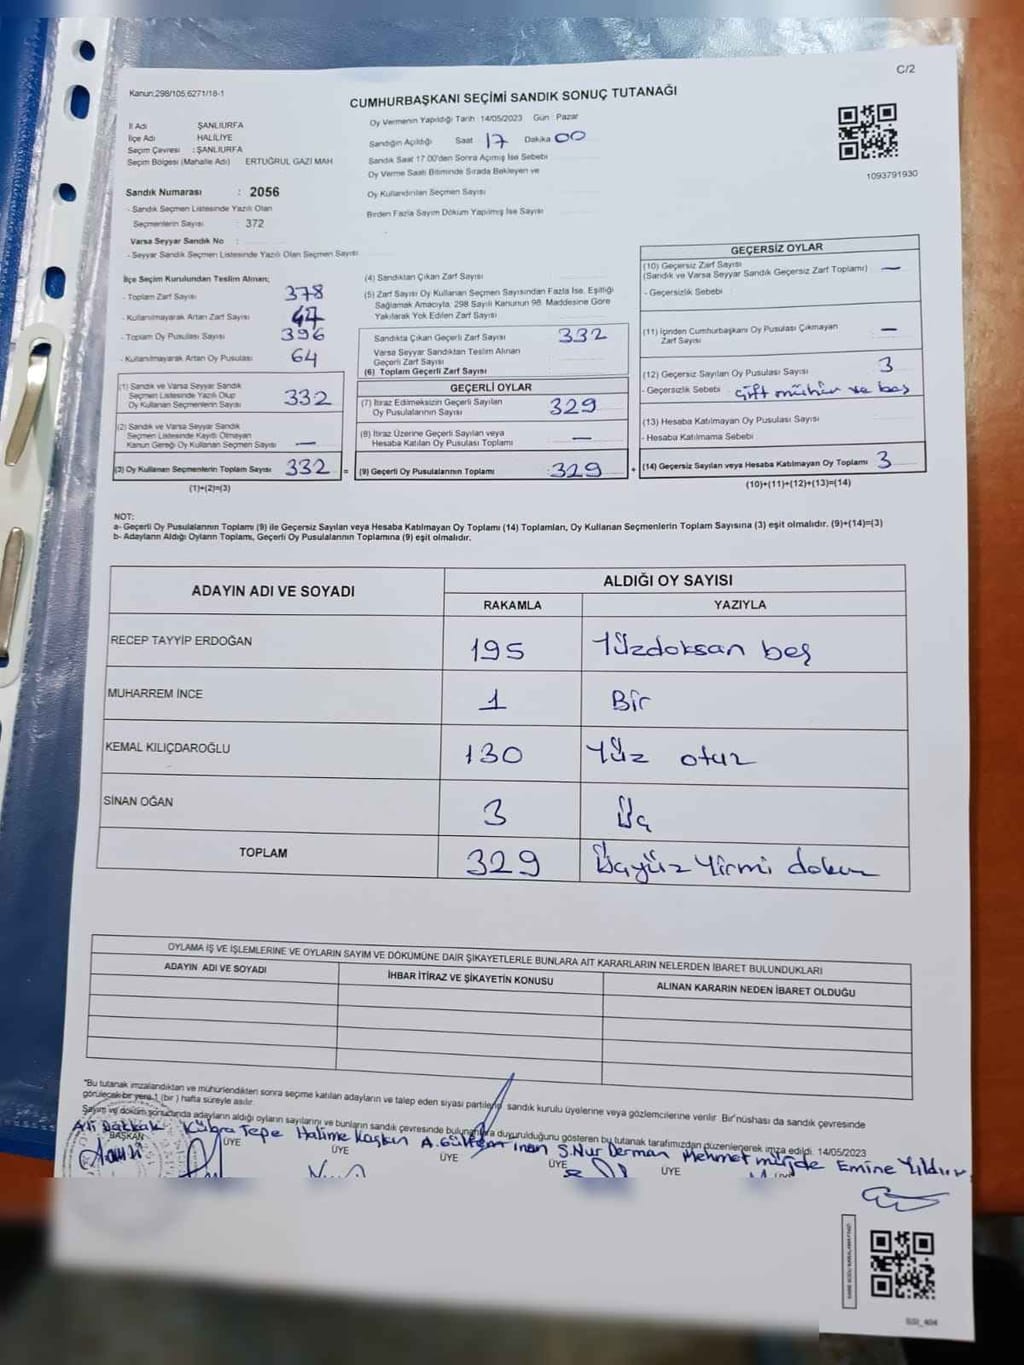 C/2
Kanun:298/105,6271/18-1
CUMHURBAŞKANI SEÇİMİ SANDIK SONUÇ TUTANAĞI
İl Adı ŞANLIURFA
İlçe Adı HALİLİYE
Seçim Çevresi : ŞANLIURFA
Seçim Bölgesi (Mahalle Adı) ERTUĞRUL GAZİ MAH
Oy Vermenin Yapıldığı Tarih 14/05/2023 Gün : Pazar
Sandığın Açıldığı Saat 17 Dakika 00
Sandık Saat 17.00'den Sonra Açılmış İse Sebebi
Oy Verme Saati Bitiminde Sırada Bekleyen ve
Oy Kullandırılan Seçmen Sayısı
Birden Fazla Sayım Döküm Yapılmış İse Sayısı
1093791930
Sandık Numarası : 2056
- Sandık Seçmen Listesinde Yazılı Olan
Seçmenlerin Sayısı : 372
Varsa Seyyar Sandık No :
- Seyyar Sandık Seçmen Listesinde Yazılı Olan Seçmen Sayısı
İlçe Seçim Kurulundan Teslim Alınan;
- Toplam Zarf Sayısı 378
- Kullanılmayarak Artan Zarf Sayısı
- Toplam Oy Pusulası Sayısı 396
- Kullanılmayarak Artan Oy Pusulası 64
(1) Sandık ve Varsa Seyyar Sandık
Seçmen Listesinde Yazılı Olup
Oy Kullanan Seçmenlerin Sayısı 332
(2) Sandık ve Varsa Seyyar Sandık
Seçmen Listesinde Kayıtlı Olmayan
Kanun Gereği Oy Kullanan Seçmen Sayısı —
(3) Oy Kullanan Seçmenlerin Toplam Sayısı 332 =
(1)+(2)=(3)
(4) Sandıktan Çıkan Zarf Sayısı
(5) Zarf Sayısı Oy Kullanan Seçmen Sayısından Fazla İse, Eşitliği
Sağlamak Amacıyla, 298 Sayılı Kanunun 98. Maddesine Göre
Yakılarak Yok Edilen Zarf Sayısı
Sandıkta Çıkan Geçerli Zarf Sayısı 332
Varsa Seyyar Sandıktan Teslim Alınan
Geçerli Zarf Sayısı
(6) Toplam Geçerli Zarf Sayısı
GEÇERLİ OYLAR
(7) İtiraz Edilmeksizin Geçerli Sayılan
Oy Pusulalarının Sayısı 329
(8) İtiraz Üzerine Geçerli Sayılan veya
Hesaba Katılan Oy Pusulası Toplamı —
(9) Geçerli Oy Pusulalarının Toplamı : 329 +
GEÇERSİZ OYLAR
(10) Geçersiz Zarf Sayısı
(Sandık ve Varsa Seyyar Sandık Geçersiz Zarf Toplamı) —
- Geçersizlik Sebebi
(11) İçinden Cumhurbaşkanı Oy Pusulası Çıkmayan
Zarf Sayısı —
(12) Geçersiz Sayılan Oy Pusulası Sayısı 3
- Geçersizlik Sebebi çift mühür ve boş
(13) Hesaba Katılmayan Oy Pusulası Sayısı
- Hesaba Katılmama Sebebi
(14) Geçersiz Sayılan veya Hesaba Katılmayan Oy Toplamı 3
(10)+(11)+(12)+(13)=(14)
NOT:
a- Geçerli Oy Pusulalarının Toplamı (9) ile Geçersiz Sayılan veya Hesaba Katılmayan Oy Toplamı (14) Toplamları, Oy Kullanan Seçmenlerin Toplam Sayısına (3) eşit olmalıdır. (9)+(14)=(3)
b- Adayların Aldığı Oyların Toplamı, Geçerli Oy Pusulalarının Toplamına (9) eşit olmalıdır.
ADAYIN ADI VE SOYADI ALDIĞI OY SAYISI
RAKAMLA YAZIYLA
RECEP TAYYİP ERDOĞAN 195 Yüzdoksan beş
MUHARREM İNCE 1 Bir
KEMAL KILIÇDAROĞLU 130 Yüz otuz
SİNAN OĞAN 3 Üç
TOPLAM 329 Üçyüz Yirmi dokuz
OYLAMA İŞ VE İŞLEMLERİNE VE OYLARIN SAYIM VE DÖKÜMÜNE DAİR ŞİKAYETLERLE BUNLARA AİT KARARLARIN NELERDEN İBARET BULUNDUKLARI
ADAYIN ADI VE SOYADI İHBAR İTİRAZ VE ŞİKAYETİN KONUSU ALINAN KARARIN NEDEN İBARET OLDUĞU
"Bu tutanak imzalandıktan ve mühürlendikten sonra seçime katılan adayların ve talep eden siyasi partilerin, sandık kurulu üyelerine veya gözlemcilerine verilir. Bir nüshası da sandık çevresinde
görülecek bir yere 1 (bir ) hafta süreyle asılır.
Sayım ve döküm sonucunda adayların aldığı oyların sayılarını ve bunların sandık çevresinde duyurulduğunu gösteren bu tutanak tarafımızdan düzenlenerek imza edildi. 14/05/2023
Ali Dakkak Kübra Tepe Halime Kaşkan A. Gülten inan S.Nur Derman Mehmet müjde Emine Yıldır
BAŞKAN ÜYE ÜYE ÜYE ÜYE ÜYE